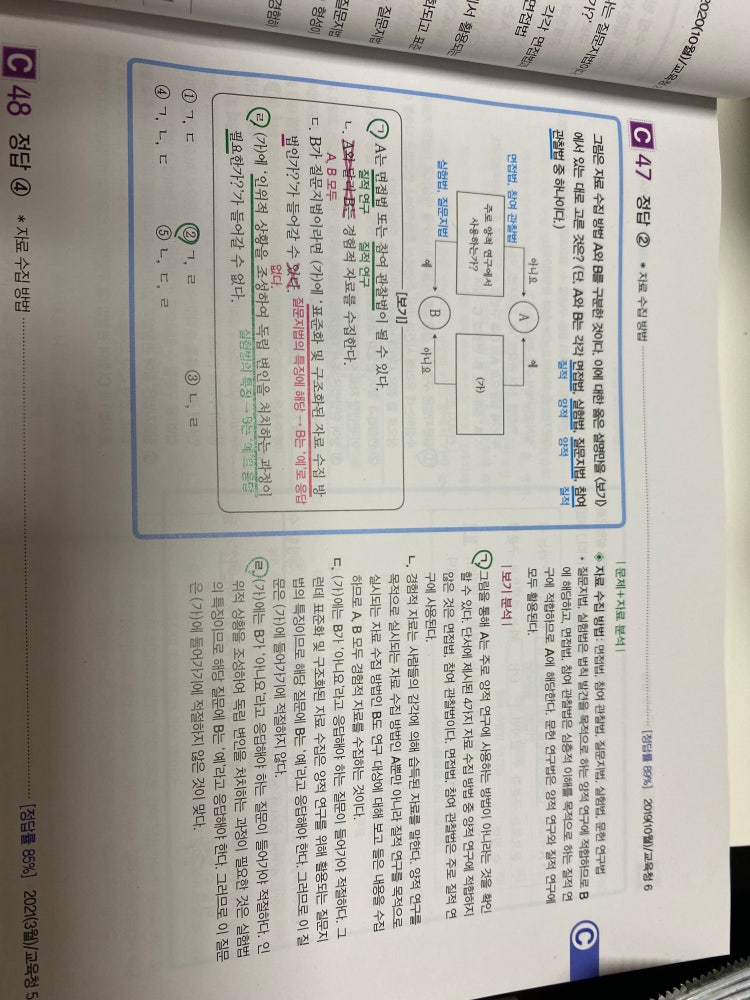 2020(10월)/교육청
각각 면접법
면접법
C 47 정답 ② * 자료 수집 방법
[정답률 89%] 2019(10월)/교육청 6
그림은 자료 수집 방법 A와 B를 구분한 것이다. 이에 대한 옳은 설명만을 <보기>
에서 있는 대로 고른 것은? (단, A와 B는 각각 면접법, 실험법, 질문지법, 참여
질적 양적 양적 질적
관찰법 중 하나이다.)
면접법, 참여 관찰법
아니요
A
예
주로 양적 연구에서
사용하는가?
(가)
실험법, 질문지법
예
B
아니요
[보기]
ㄱ. A는 면접법 또는 참여 관찰법이 될 수 있다.
질적 연구 질적 연구
ㄴ. A와 달리 B는 경험적 자료를 수집한다.
A, B 모두
ㄷ. B가 질문지법이라면 (가)에 '표준화 및 구조화된 자료 수집 방
법인가?'가 들어갈 수 있다. 질문지법의 특징에 해당 → B는 '예'로 응답
없다.
ㄹ. (가)에 '인위적 상황을 조성하여 독립 변인을 처치하는 과정이
필요한가?'가 들어갈 수 없다. 실험법의 특징 → B는 '예'로 응답
① ㄱ, ㄷ
② ㄱ, ㄹ
③ ㄴ, ㄹ
④ ㄱ, ㄴ, ㄷ
⑤ ㄴ, ㄷ, ㄹ
C
| 문제+자료 분석 |
◈ 자료 수집 방법: 면접법, 참여 관찰법, 질문지법, 실험법, 문헌 연구법
• 질문지법, 실험법은 법칙 발견을 목적으로 하는 양적 연구에 적합하므로 B
에 해당하고, 면접법, 참여 관찰법은 심층적 이해를 목적으로 하는 질적 연
구에 적합하므로 A에 해당한다. 문헌 연구법은 양적 연구와 질적 연구에
모두 활용된다.
| 보기 분석 |
ㄱ. 그림을 통해 A는 주로 양적 연구에 사용하는 방법이 아니라는 것을 확인
할 수 있다. 단서에 제시된 4가지 자료 수집 방법 중 양적 연구에 적합하지
않은 것은 면접법, 참여 관찰법이다. 면접법, 참여 관찰법은 주로 질적 연
구에 사용된다.
ㄴ. 경험적 자료는 사람들의 감각에 의해 습득된 자료를 말한다. 양적 연구를
목적으로 실시되는 자료 수집 방법인 A뿐만 아니라 질적 연구를 목적으로
실시되는 자료 수집 방법인 B도 연구 대상에 대해 보고 들은 내용을 수집
하므로 A, B 모두 경험적 자료를 수집하는 것이다.
ㄷ. (가)에는 B가 '아니요'라고 응답해야 하는 질문이 들어가야 적절하다. 그
런데 표준화 및 구조화된 자료 수집은 양적 연구를 위해 활용되는 질문지
법의 특징이므로 해당 질문에 B는 '예'라고 응답해야 한다. 그러므로 이 질
문은 (가)에 들어가기에 적절하지 않다.
ㄹ. (가)에는 B가 '아니요'라고 응답해야 하는 질문이 들어가야 적절하다. 인
위적 상황을 조성하여 독립 변인을 처치하는 과정이 필요한 것은 실험법
의 특징이므로 해당 질문에 B는 '예'라고 응답해야 한다. 그러므로 이 질문
은 (가)에 들어가기에 적절하지 않은 것이 맞다.
C 48 정답 ④ * 자료 수집 방법
[정답률 85%] 2021(3월)/교육청 5